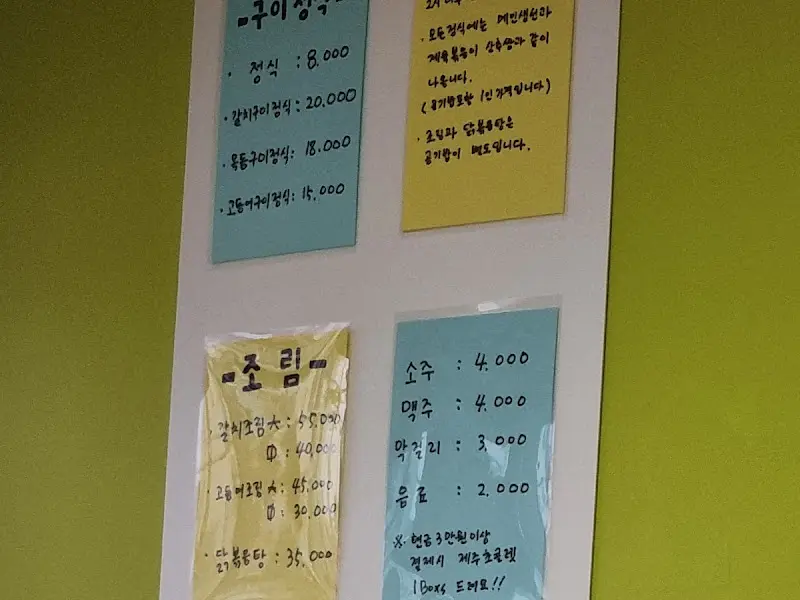 -구이정식-
· 정식 : 8,000
· 갈치구이정식 : 20,000
· 옥돔구이정식 : 18,000
· 고등어구이정식 : 15,000
· 모든정식에는 메인생선과
제육볶음이 상추쌈과 같이
나옵니다.
(공기밥포함 1인 가격입니다)
· 조림과 닭볶음탕은
공기밥이 별도입니다.
-조림-
· 갈치조림 大 : 55,000
中 : 40,000
· 고등어조림 大 : 45,000
中 : 30,000
· 닭볶음탕 : 35,000
소주 : 4,000
맥주 : 4,000
막걸리 : 3,000
음료 : 2,000
※ 현금 3만원이상
결제시 제주초콜렛
1Boxs 드려요!!